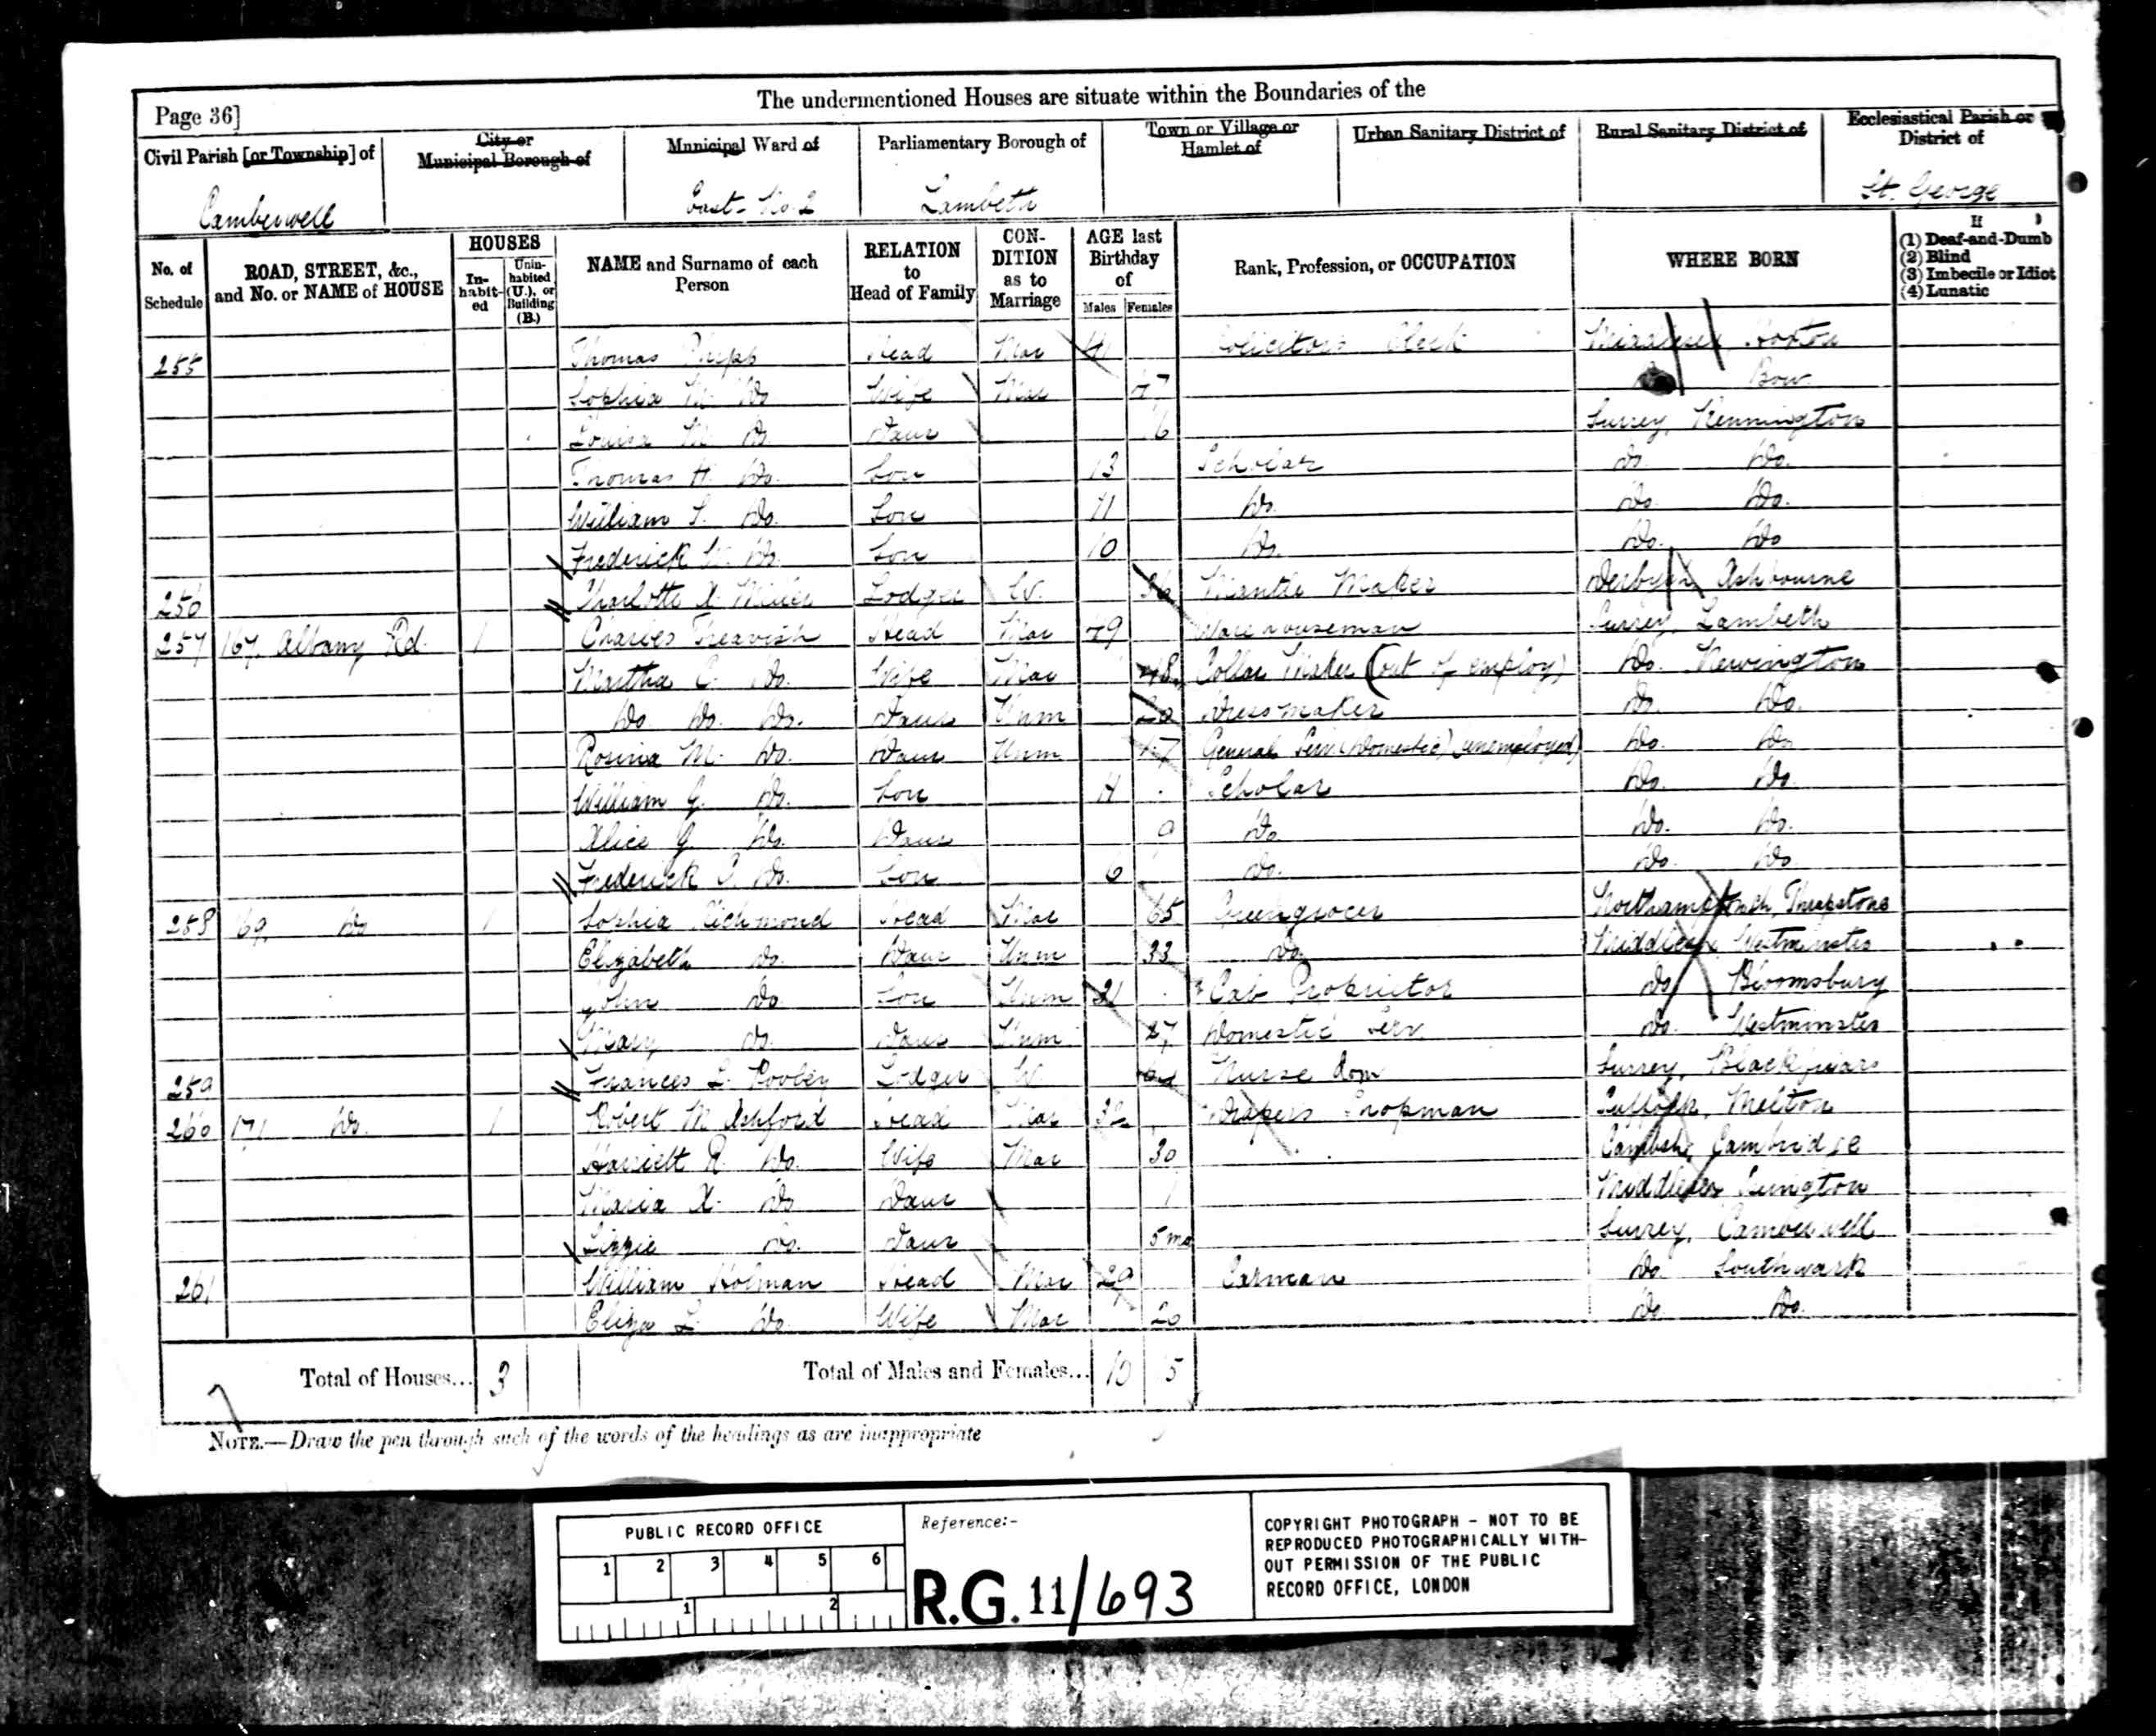 The undermentioned Houses are situate within the Boundaries of the
Page 36]
Civil Parish [or Township] of
City or Municipal Borough of
Municipal Ward of
Parliamentary Borough of
Town or Village or Hamlet of
Urban Sanitary District of
Rural Sanitary District of
Ecclesiastical Parish or District of
Camberwell East No. 2 Lambeth St. George
No. of Schedule
ROAD, STREET, &c., and No. or NAME of HOUSE
HOUSES
Inhabited
Uninhabited (U.), or Building (B.)
NAME and Surname of each Person
RELATION to Head of Family
CONDITION as to Marriage
AGE last Birthday of
Males Females
Rank, Profession, or OCCUPATION
WHERE BORN
(1) Deaf-and-Dumb
(2) Blind
(3) Imbecile or Idiot
(4) Lunatic
255 Thomas Head Mar Solicitors Clerk Middlesex Hoxton
Sophia M. Do Wife Mar 47 Bow
Louisa M. Do Daur 16 Surrey, Kennington
Thomas H. Do. Son 13 Scholar Do. Do.
William S. Do. Son 11 Do. Do. Do.
Frederick W. Do. Son 10 Do. Do. Do
256 Charlotte A. Miller Lodger W. 36 Mantle Maker Derbysh Ashbourne
257 167, Albany Rd. 1 Charles Head Mar 49 Warehouseman Surrey, Lambeth
Martha C. Do. Wife Mar 48 Collar Maker (out of employ) Do. Newington
Do Do. Do. Daur Unm 20 Dressmaker Do. Do.
Rosina M. Do. Daur Unm 17 General Serv (Domestic) (unemployed) Do. Do
William G. Do. Son 11 Scholar Do. Do.
Alice G. Do. Daur 9 Do. Do. Do.
Frederick C. Do. Son 6 Do. Do. Do.
258 169, Do 1 Sophia Richmond Head Mar 65 Greengrocer Northamptonsh, Thrapstone
Elizabeth Do. Daur Unm 33 Do. Middlesex Westminster
John Do Son Unm 21 Cab Proprietor Do Bloomsbury
Mary Do. Daur Unm 27 Domestic Serv Do. Westminster
259 Frances L. Lodger W. Nurse Dom Surrey, Blackfriars
260 171 Do. 1 Robert M. Ashford Head Mar 32 Drapers Shopman Suffolk, Melton
Harriett R. Do. Wife Mar 30 Cambsh, Cambridge
Maria A. Do Daur 1 Middlesex
Lizzie Do. Daur 5 mo Surrey, Camberwell
261 William Holman Head Mar 29 Carman Do. Southwark
Eliza L. Do. Wife Mar 20 Do. Do.
Total of Houses... 3 Total of Males and Females... 10 15
NOTE.—Draw the pen through such of the words of the headings as are inappropriate
PUBLIC RECORD OFFICE
1 2 3 4 5 6
1 2
Reference:-
R.G. 11/693
COPYRIGHT PHOTOGRAPH - NOT TO BE
REPRODUCED PHOTOGRAPHICALLY WITH-
OUT PERMISSION OF THE PUBLIC
RECORD OFFICE, LONDON